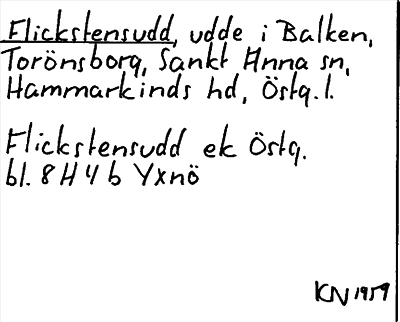 Flickstensudd, udde i Balken,
Torönsborg, Sankt Anna sn,
Hammarkinds hd, Östg. l.
Flickstensudd ek Östg.
bl. 8 H 4 b Yxnö
KN 1959